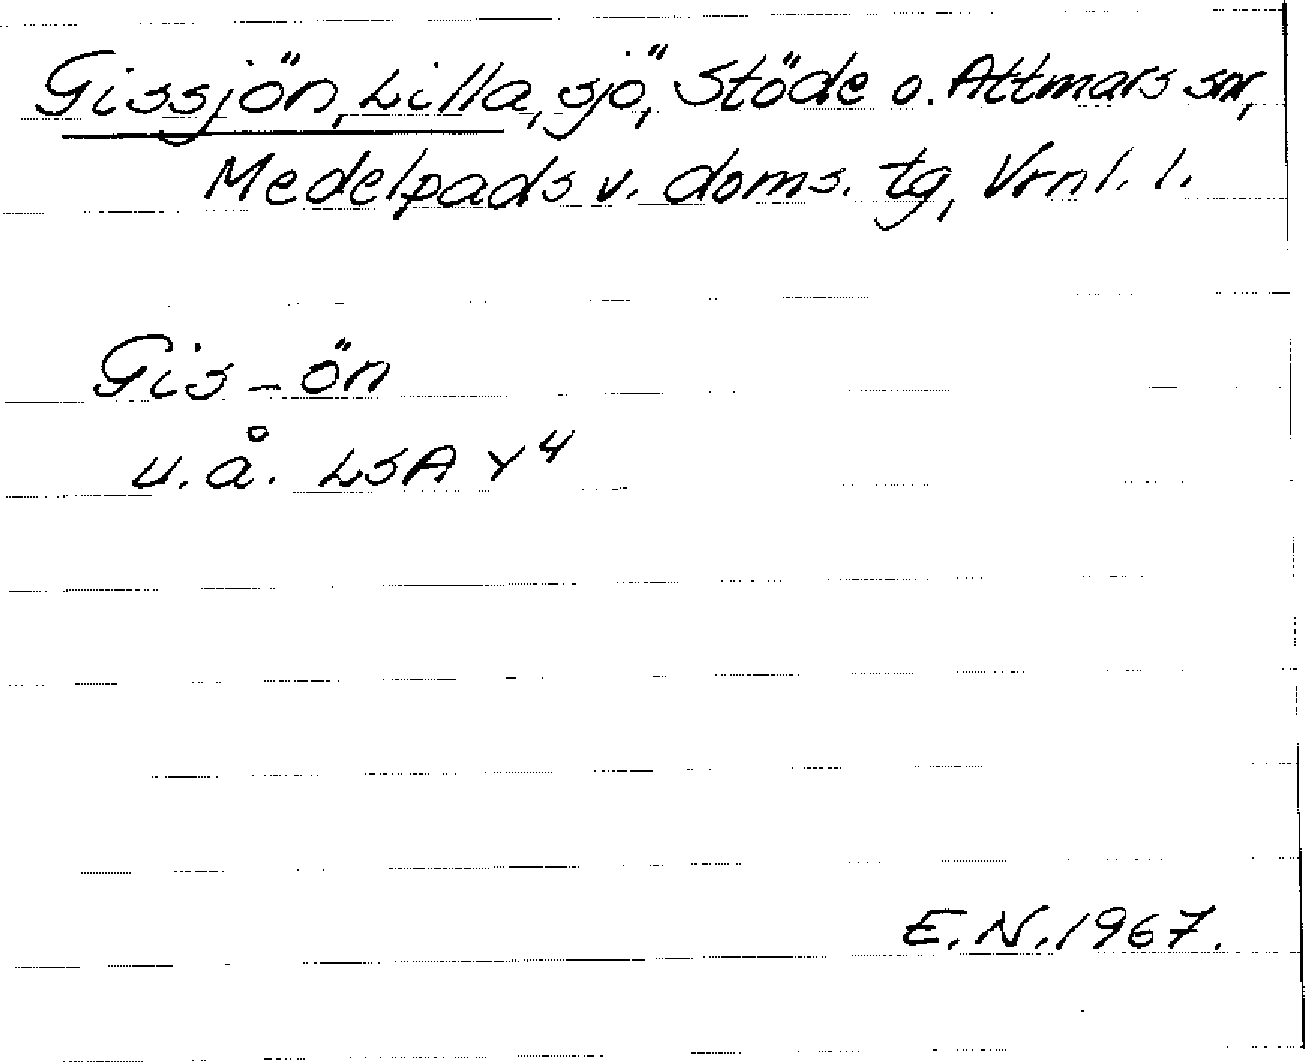 Gissjön, Lilla, sjö, Stöde o. Attmars snr,
Medelpads v. doms. tg, Vrnl. l.
Gis-ön
u.å. LSA Y4
E.N. 1967.